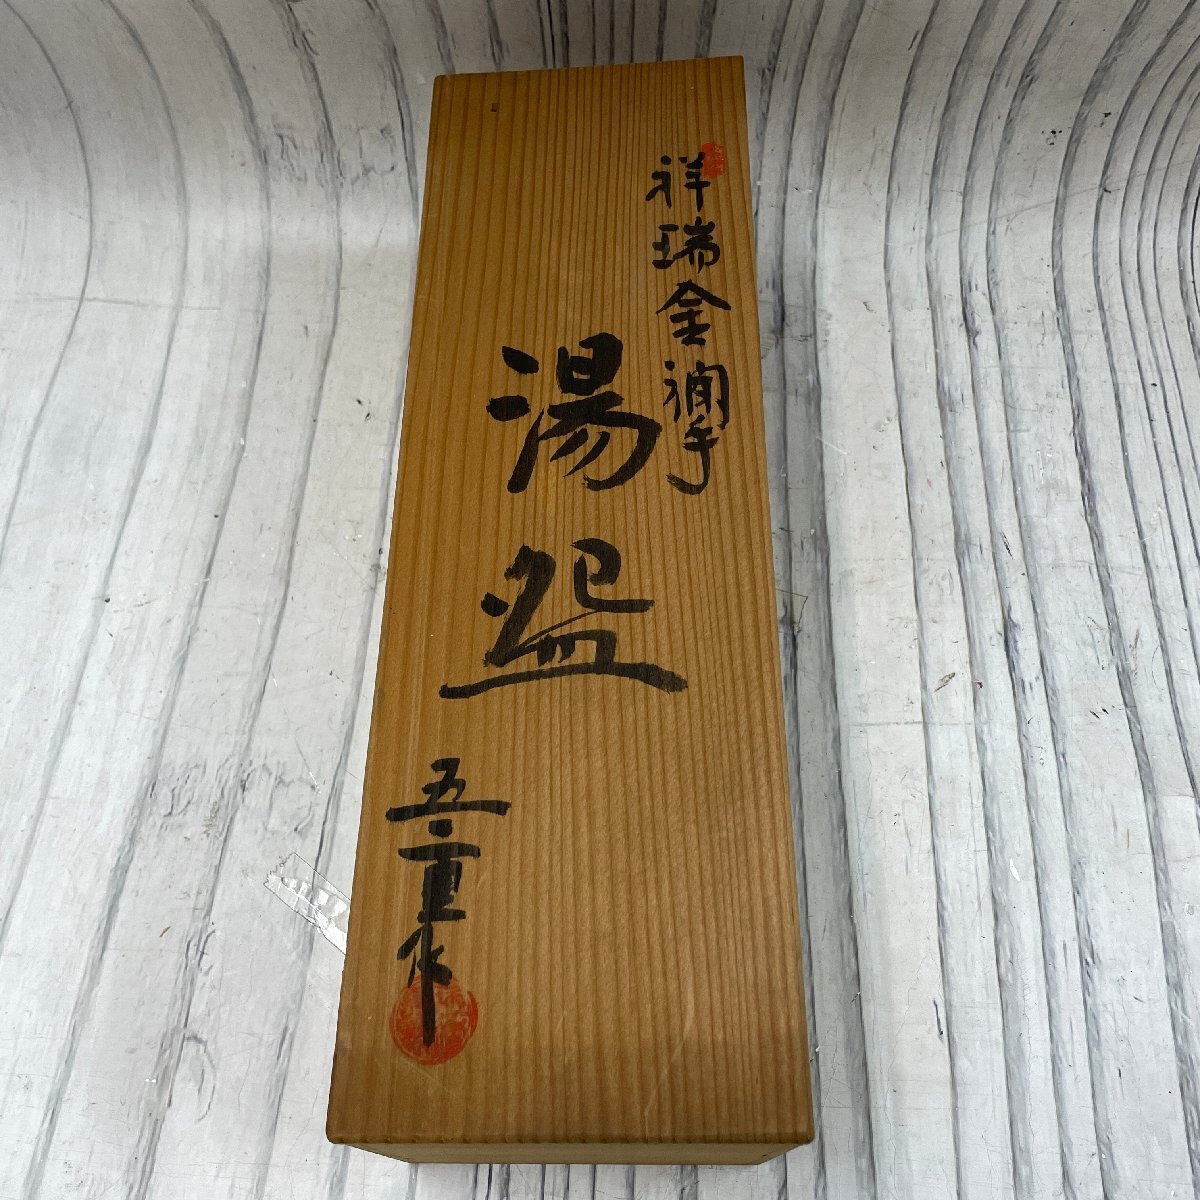 祥瑞金襴手
湯盌
五重作